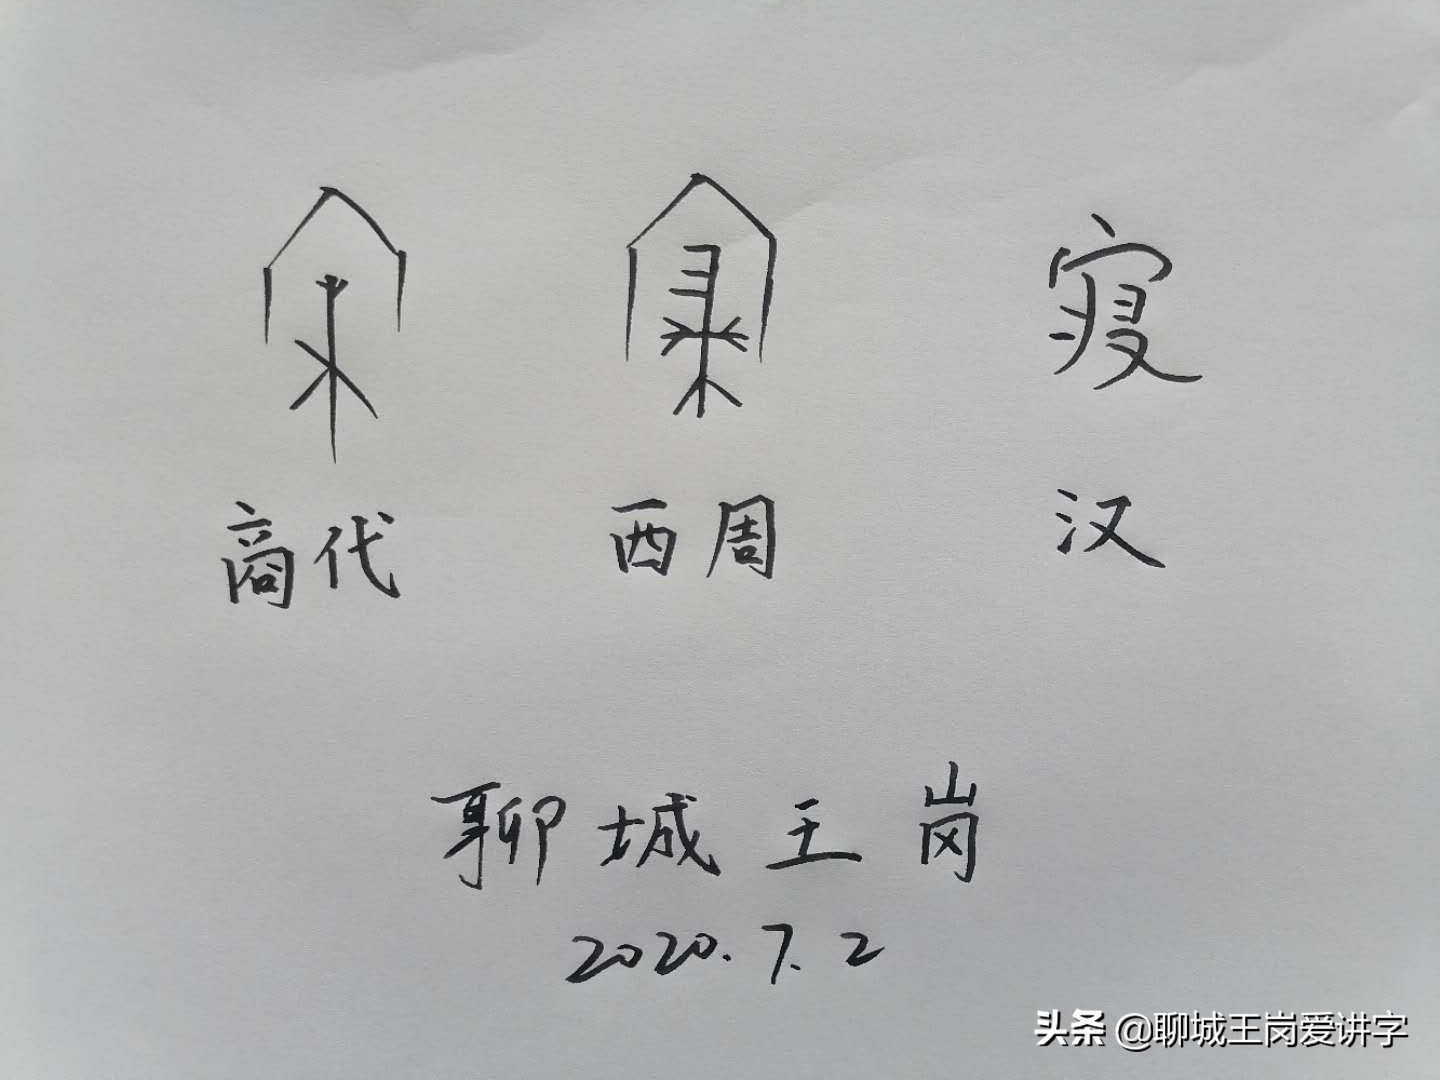 寝
商代 西周 汉
聊城王岗
2020.7.2
头条 @聊城王岗爱讲字